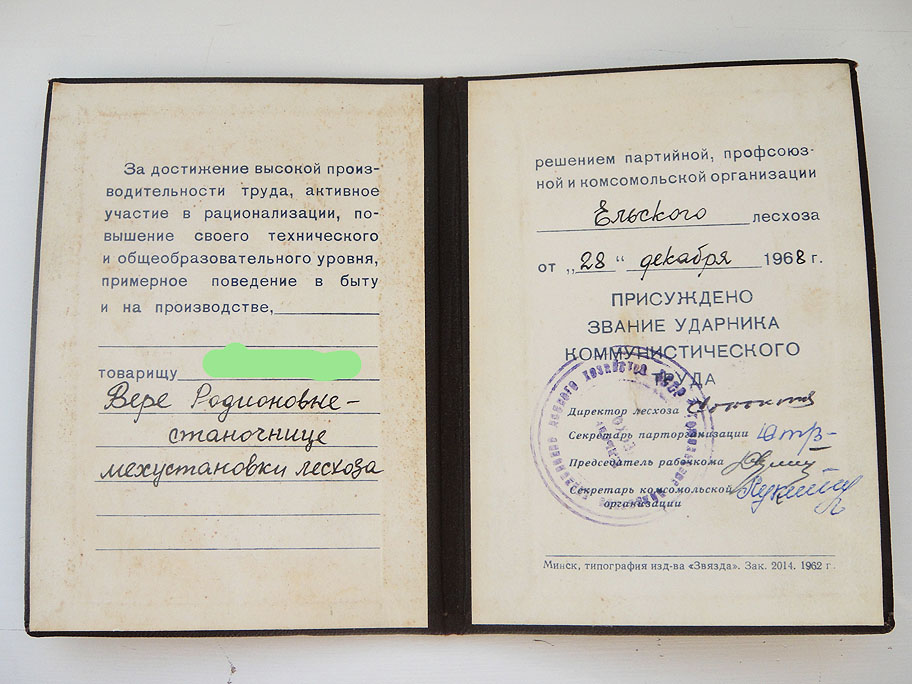 За достижение высокой произ-
водительности труда, активное
участие в рационализации, по-
вышение своего технического
и общеобразовательного уровня,
примерное поведение в быту
и на производстве,
товарищу
Вере Родионовне -
станочнице
мехустановки лесхоза
решением партийной, профсоюз-
ной и комсомольской организации
Ельского лесхоза
от „28“ декабря 1968 г.
ПРИСУЖДЕНО
ЗВАНИЕ УДАРНИКА
КОММУНИСТИЧЕСКОГО
ТРУДА
Директор лесхоза
Секретарь парторганизации
Председатель рабочкома
Секретарь комсомольской
организации
Минск, типография изд-ва «Звязда». Зак. 2014. 1962 г.